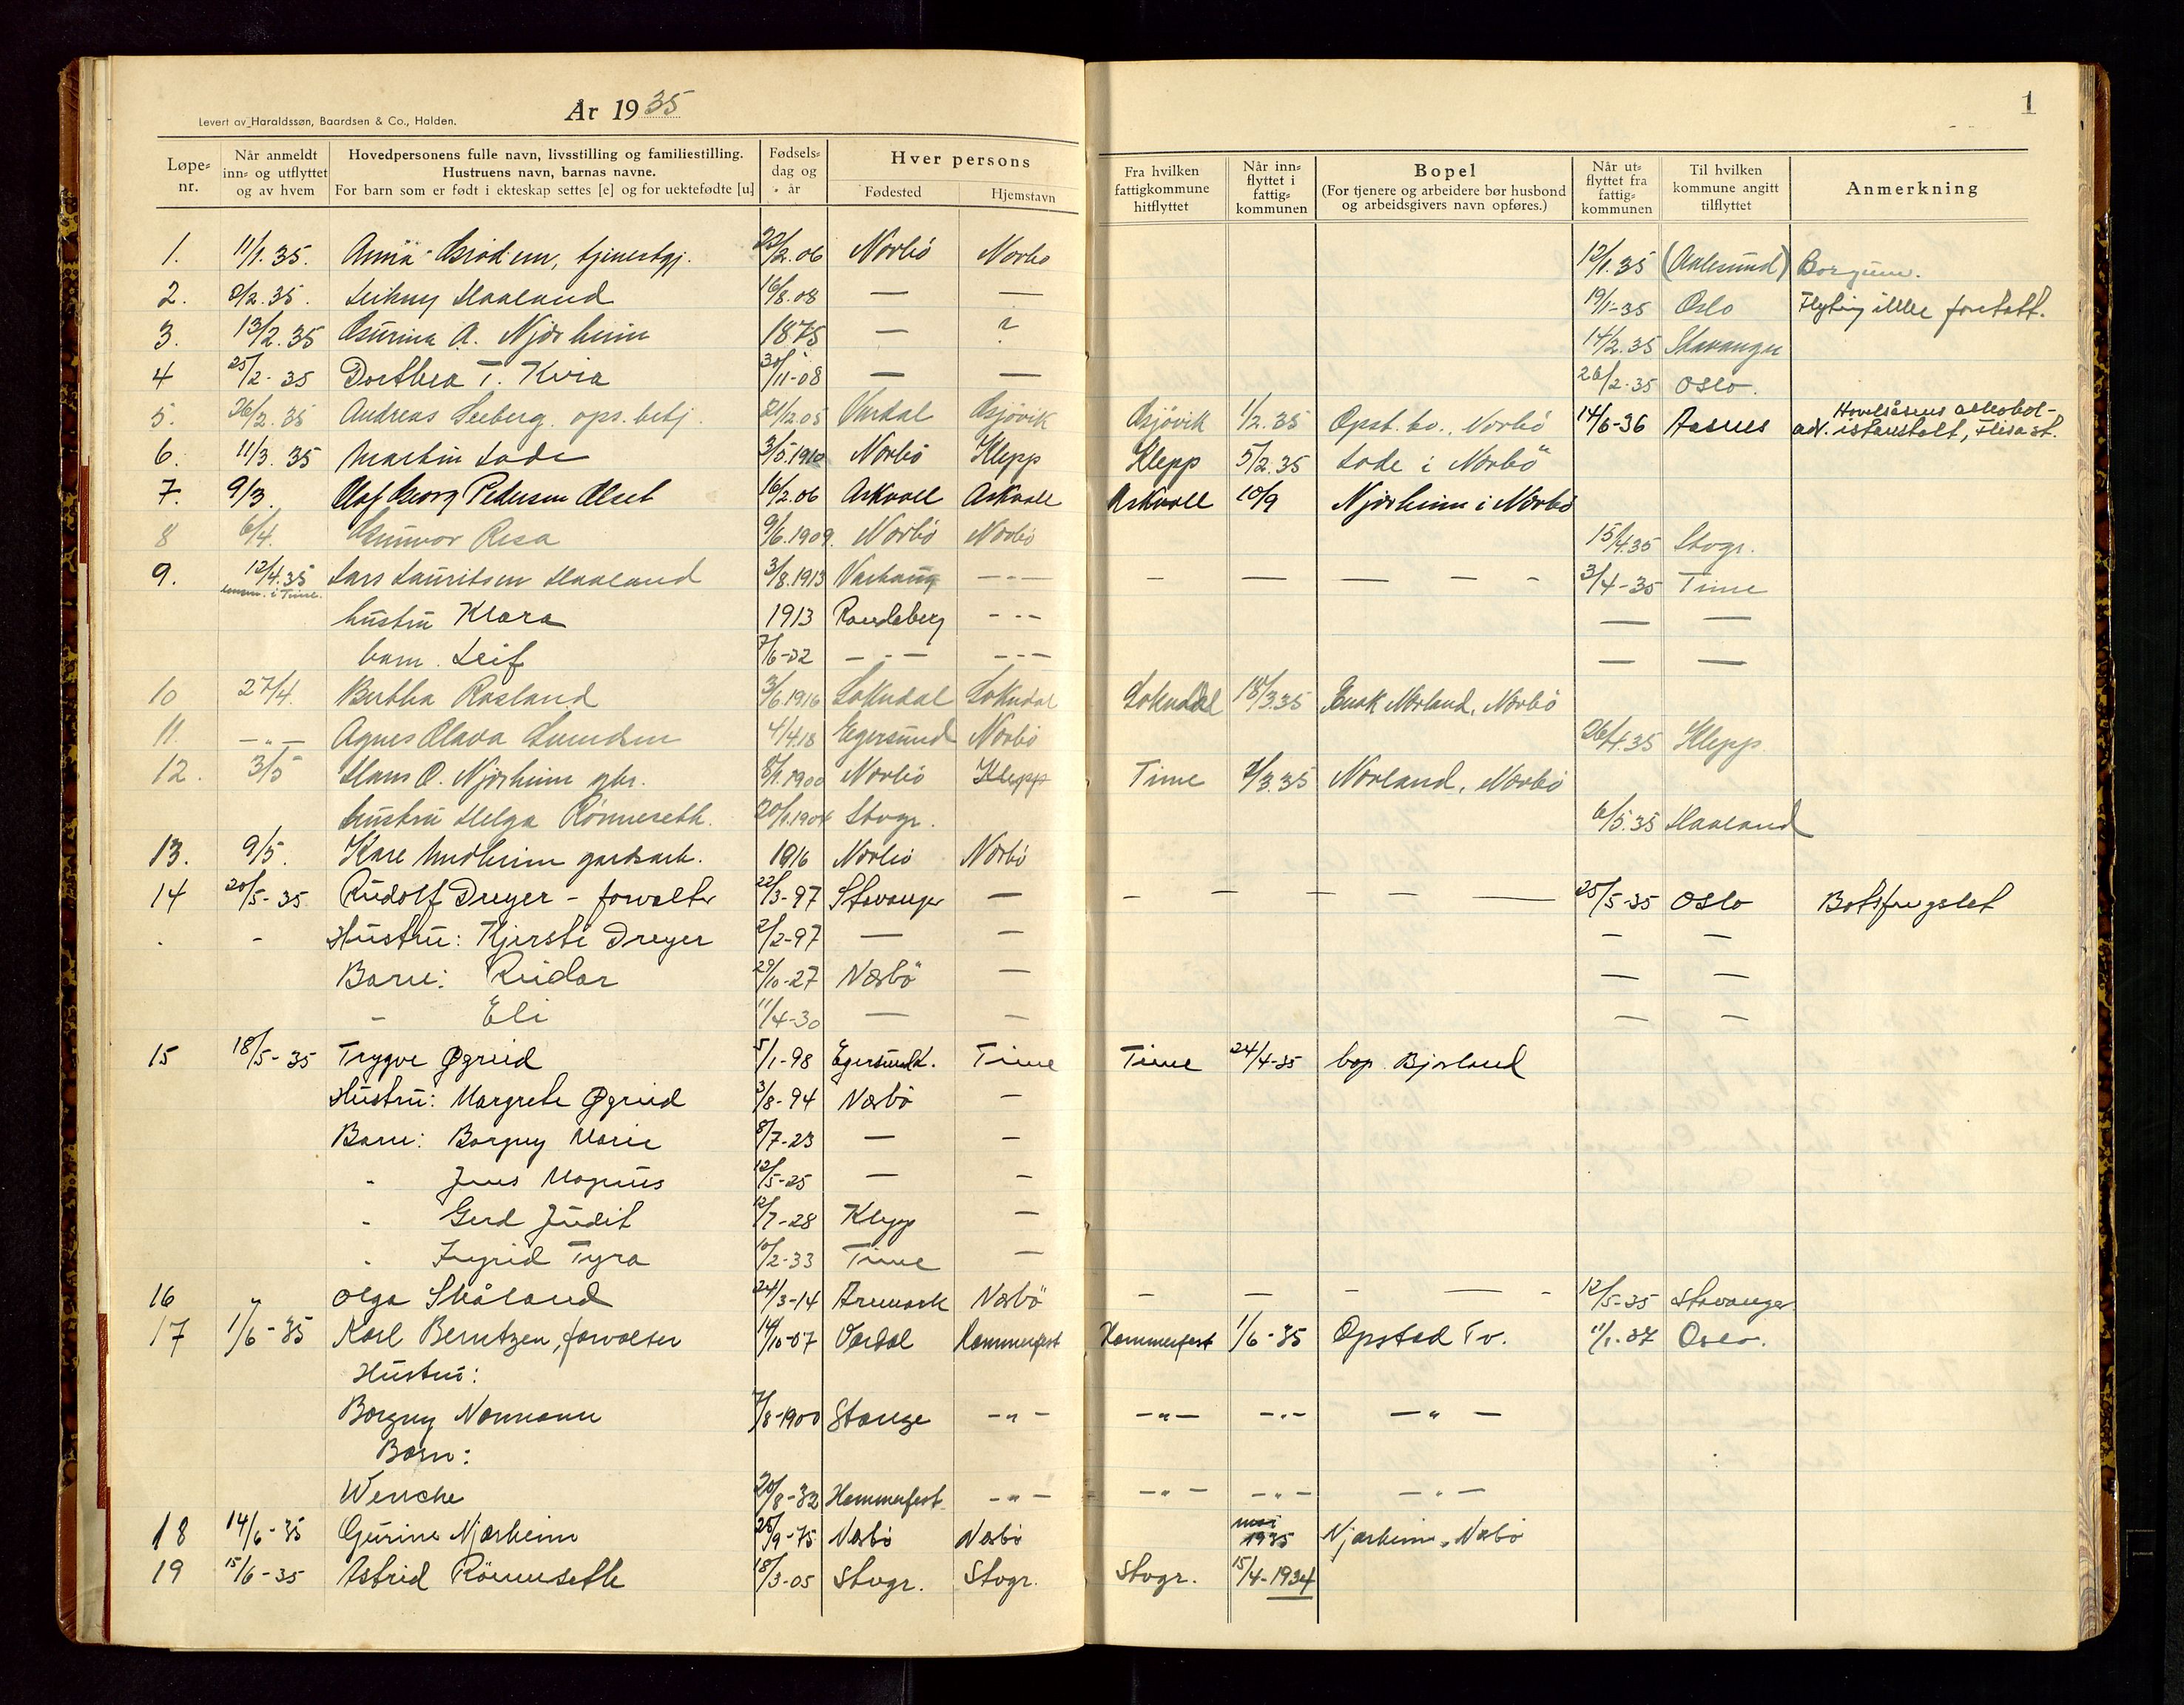 År 1935
1
Levert av Haraldssøn, Baardsen & Co., Halden.
Løpe-nr. Når anmeldt inn- og utflyttet og av hvem Hovedpersonens fulle navn, livsstilling og familiestilling. Hustruens navn, barnas navne. For barn som er født i ekteskap settes [e] og for uektefødte [u] Fødsels-dag og år Hver persons Fødested Hjemstavn Fra hvilken fattigkommune hitflyttet Når inn-flyttet i fattig-kommunen Bopel (For tjenere og arbeidere bør husbond og arbeidsgivers navn opføres.) Når ut-flyttet fra fattig-kommunen Til hvilken kommune angitt tilflyttet Anmerkning
1. 11/1.35. Anna tjenestgj. 22/2.06 Nærbö Nærbö 12/1.35 (Aalesund)
2. 2/2.35. Haaland 16/8.08 — — 19/1-35 Oslo
3. 13/2.35 Gurina A. Njærheim 1875 — ? 14/2.35 Stavanger
4 25/2-35 Dorthea T. Kvia 30/11-08 — — 26/2-35 Oslo.
5. 26/2.35 Andreas Seeberg. ops.betj. 21/12.05 Vardal Gjövik Gjövik 1/2.35 Opst. Nærbö 14/6-36 Aasnes
6. 11/3.35 Martin Lode 3/5.1910 Nærbö Klepp Klepp 5/2.35 Lode i Nærbö
7. 9/3. Olaf Georg Pedersen 16/2.06 Askvoll Askvoll Askvoll 10/9 Njærheim i Nærbö
8 6/4. Gunvor Resa 9/6.1909. Nærbö Nærbö 15/4.35 Stvgr.
9. 12/4.35 Lars Lauritsen Haaland 3/8.1913 Varhaug -"- — — — — - 3/4-35 Time
lensm. i Time.
hustru Klara 1913 Randaberg -"- — —
barn. Leif 7/6-32 -"- -"- — —
10 27/4. Bertha Rosland 3/6.1916 Sokndal Sokndal Sokndal 18/3.35 Nærland, Nærbö
11. -"- Agnes Olava 4/4.18 Egersund Nærbö 26/4.35 Klepp
12. 3/5 Hans O. Njærheim gbr. 8/1.1900 Nærbö Klepp Time 7/3.35 Nærland, Nærbö
hustru Helga Rönneseth. 20/1.1904 Stvgr. 6/5.35 Haaland
13. 9/5. Kåre gardsarb. 1916 Nærbö Nærbö
14 20/5-35 Rudolf Dreyer - forvalter 22/3-97 Stavanger — - — - — — 25/5-35 Oslo Botsfengslet
- Hustru: Kjersti Dreyer 2/2-97 — — — —
Barn: Reidar 29/10-27 Nærbö — — —
- Eli 11/4-30 — — — —
15 18/5-35 Trygve Øgreid 5/1-98 Egersund. Time Time 24/4-35 bop. Bjorland
Hustru: Margrete Øgreid 3/8-94 Nærbö —
Barn: Borgny Marie 8/7-23 — —
" Jens Magnus 12/5-25 — —
" Gerd Judit 12/7-28 Klepp —
" Ingrid Tyra 10/2-33 Time —
16 " Olga Skåland 24/3-14 Aremark Nærbö - — - — - 12/5-35 Stavanger
17 1/6-35 Karl Berntzen, forvalter 14/10-07 Vardal Hammerfest Hammerfest 1/6-35 Opstad Tv. 11/1-37 Oslo.
Hustru:
Borgny Normann 7/8-1900 Stange -"- -"- -"- -"-
Barn:
Wenche 20/8-32 Hammerfest -"- -"- -"- -"-
18 14/6-35 Gurine Njærheim 25/9-75 Nærbö Nærbö mai 1935 Njærheim, Nærbö
19 15/6-35 Astrid Rönneseth 18/3-05 Stvgr. Stvgr. Stvgr. 15/4-1934